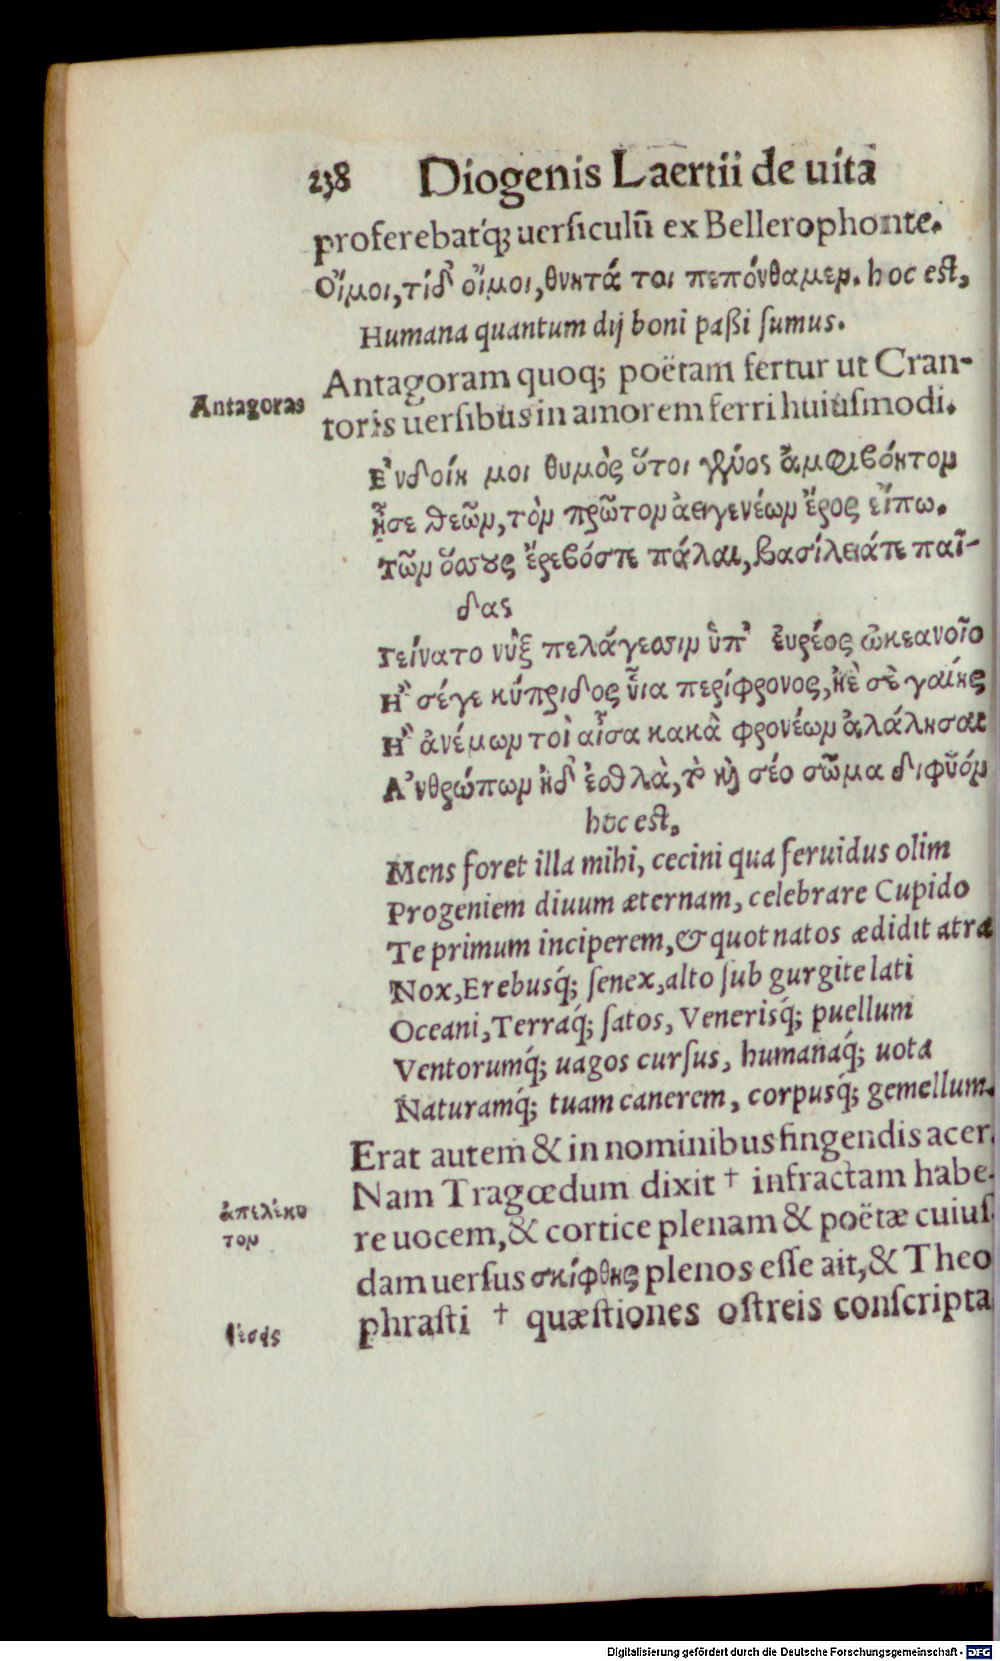 238 Diogenis Laertii de uita
proferebatq́; uersiculū ex Bellerophonte.
Οἴμοι, τίδ' οἴμοι, θνητά τοι πεπόνθαμεν. hoc est,
Humana quantum dij boni paßi sumus.
Antagoram quoq; poëtam fertur ut Cran-
Antagoras
toris uersibus in amorem ferri huiusmodi.
Ἐν δοίη μοι θυμὸς ὅτοι γλύος ἀμφιβόητον
ἦσε θεῶν, τὸν πρῶτον ἀειγενέων ἔρος εἴπω.
Τῶν ὅσους ἔρεβόστε πάλαι, βασίλειάτε παῖ-
δας
Γείνατο νὺξ πελάγεσσιν ὑπ' ἐυρέος ὠκεανοῖο
Ἢ σέγε κύπριδος ὗια περίφρονος, ἠὲ σὲ γαίης
Ἢ ἀνέμων τοὶ αἶσα κακὰ φρονέων ἀλάλησαι
Ἀνθρώπων ἠδ' ἐσθλὰ, τὸ καὶ σέο σῶμα διφῦόν
hoc est,
Mens foret illa mihi, cecini qua feruidus olim
Progeniem diuum æternam, celebrare Cupido
Te primum inciperem, & quot natos ædidit atra
Nox, Erebusq́; senex, alto sub gurgite lati
Oceani, Terraq́; satos, Venerisq́; puellum
Ventorumq́; uagos cursus, humanaq́; uota
Naturamq́; tuam canerem, corpusq́; gemellum.
Erat autem & in nominibus fingendis acer.
Nam Tragœdum dixit † infractam habe-
ἀπελέκη
τον
re uocem, & cortice plenam & poëtæ cuius
dam uersus σκίφθης plenos esse ait, & Theo
phrasti † quæstiones ostreis conscripta